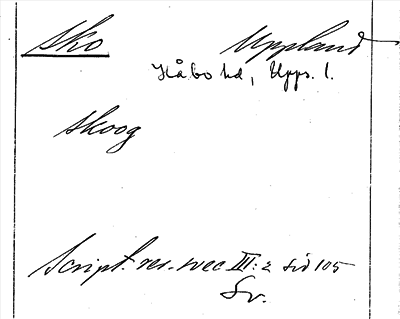 Sko Uppland
Håbo hd, Upps. l.
skoog
Script. rer. svec III:2 sid 105
Sv.